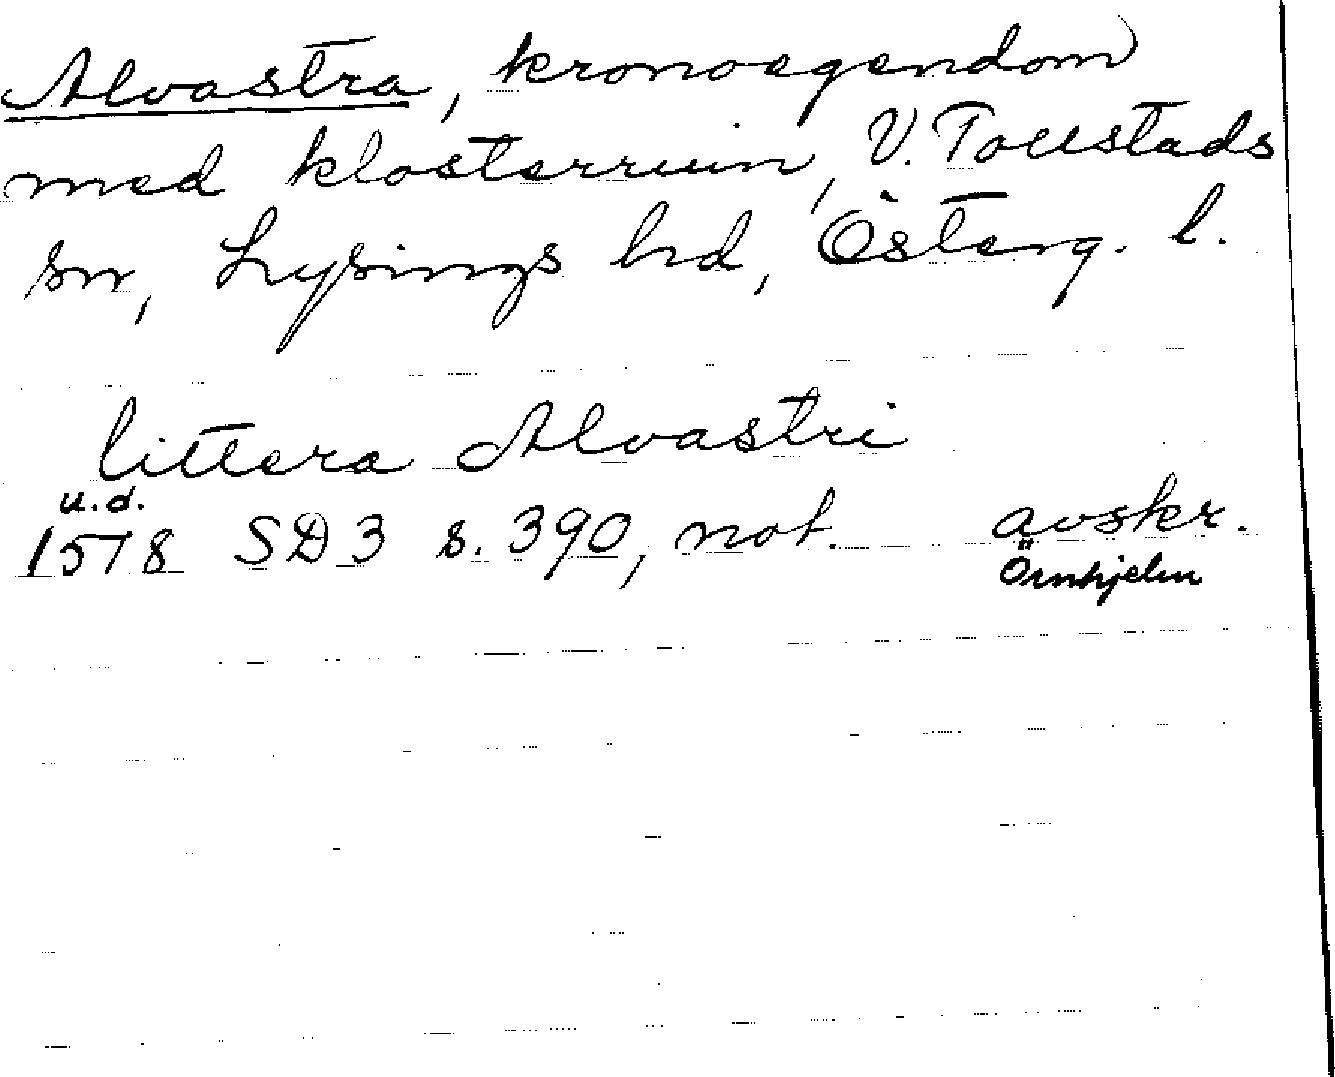 Alvastra, kronoegendom
med klosterruin, V. Tollstads
sn, Lysings hd, Österg. l.
littera Alvastri
u.d.
1578 SD 3 s. 390, not. avskr.
Örnhjelm